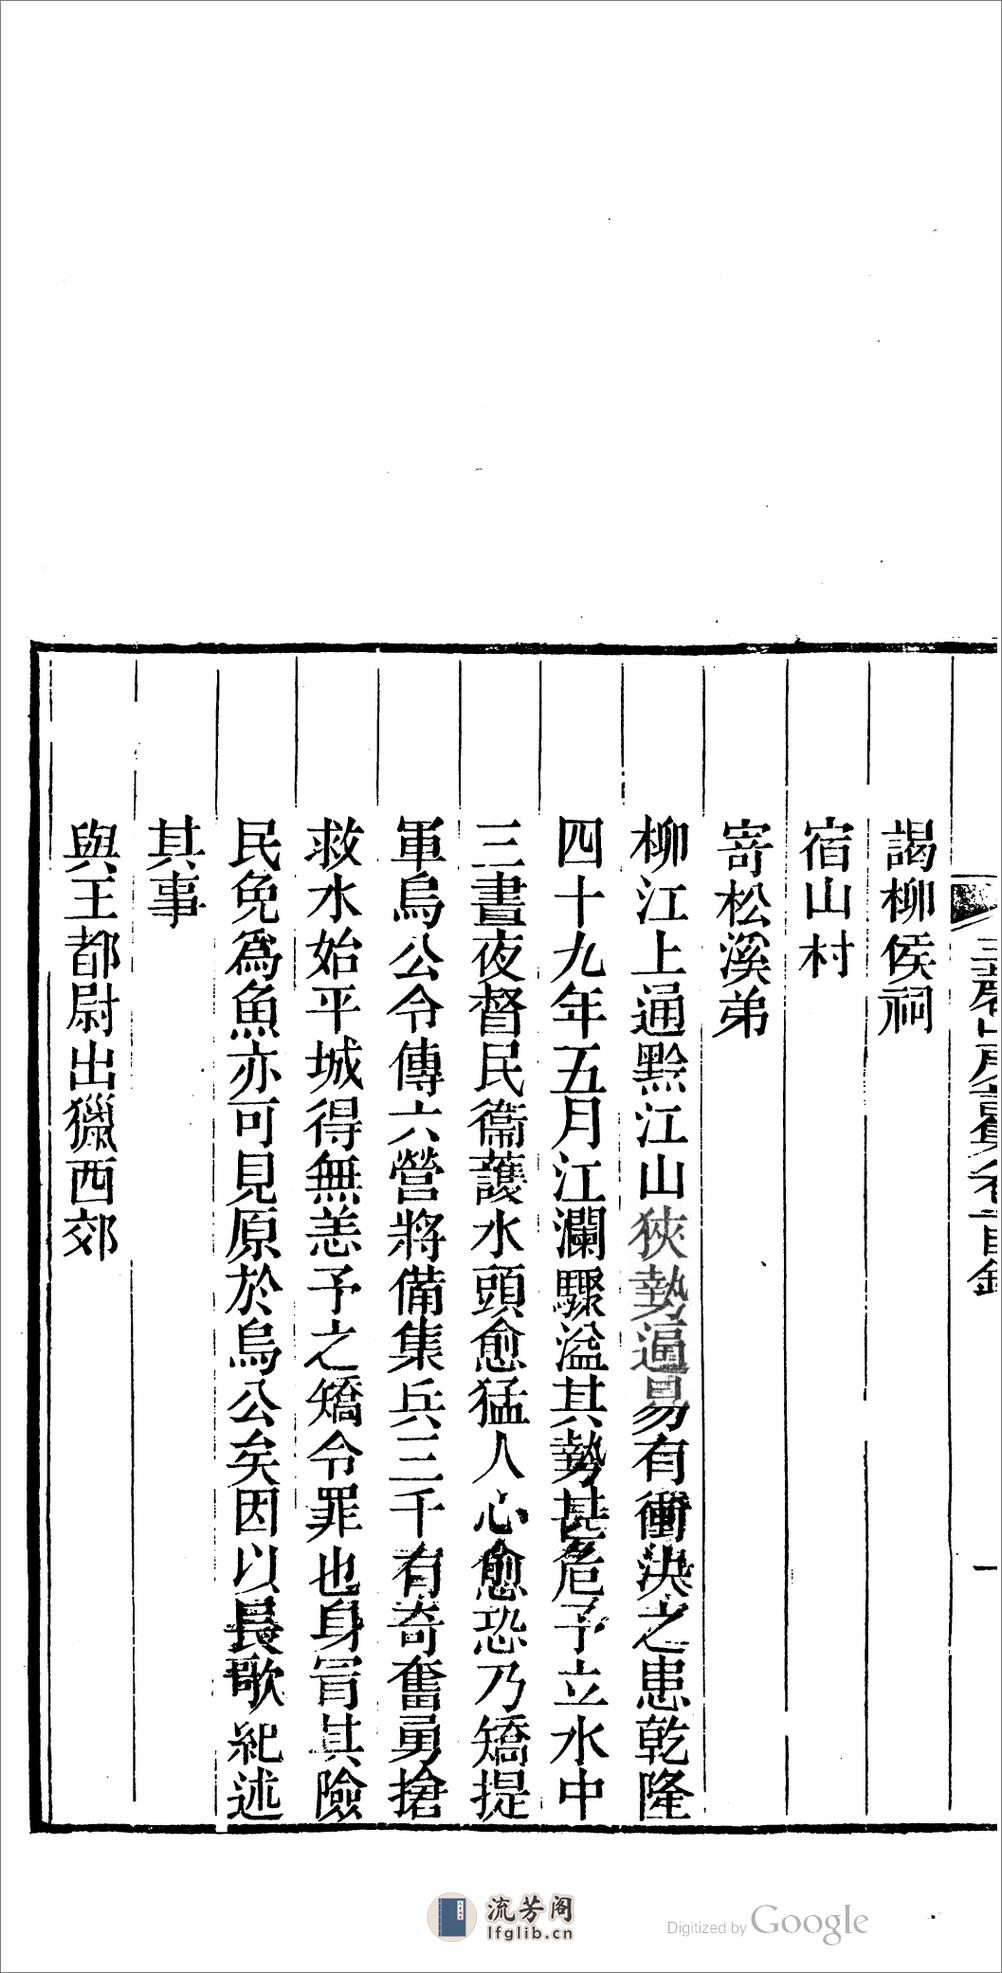 謁柳侯祠
宿山村
寄松溪弟
柳江上通黔江山狹勢逼易有衝決之患乾隆
四十九年五月江瀾驟溢其勢甚危予立水中
三晝夜督民衞護水頭愈猛人心愈恐乃矯提
軍烏公令傳六營將備集兵三千有奇奮勇搶
救水始平城得無恙予之矯令罪也身冒其險
民免爲魚亦可見原於烏公矣因以長歌紀述
其事
與王都尉出獵西郊
流芳阁
lfglib.cn
Digitized by Google